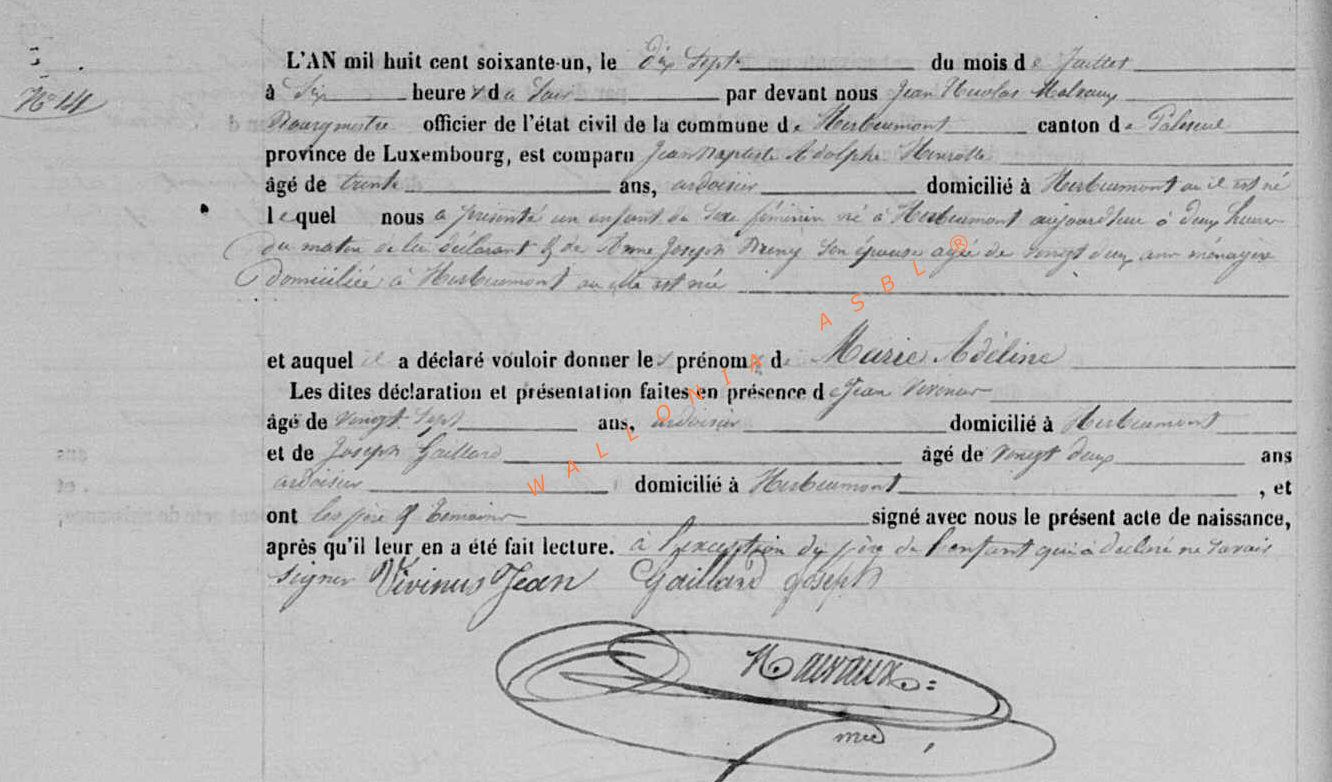 N° 14
L'AN mil huit cent soixante-un, le dix Sept du mois de Juillet
à Six heures du Soir par devant nous Jean Nicolas
Bourgmestre officier de l'état civil de la commune de Herbeumont canton de Paliseul
province de Luxembourg, est comparu Jean Baptiste Adolphe Henrotte
âgé de trente ans, ardoisier domicilié à Herbeumont où il est né
lequel nous a présenté un enfant du sexe féminin né à Herbeumont aujourd'hui à deux heures
du matin de lui déclarant & de Anne Joseph son épouse agée de vingt deux ans ménagère
Domiciliée à Herbeumont où elle est née
et auquel il a déclaré vouloir donner les prénoms de Marie Adéline
Les dites déclaration et présentation faites en présence de Jean Vivinus
âgé de vingt-sept ans, ardoisier domicilié à Herbeumont
et de Joseph Gaillard âgé de vingt deux ans
ardoisier domicilié à Herbeumont , et
ont les père & témoins signé avec nous le présent acte de naissance,
après qu'il leur en a été fait lecture. à l'exception du père de l'enfant qui a déclaré ne savoir
signer Vivinus Jean Gaillard Joseph
WALLONIA ASBL ®